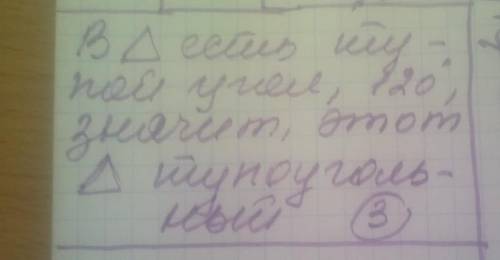 В △ есть ту-
пой угол, 120°,
значит, этот
△ тупоуголь-
ный ③